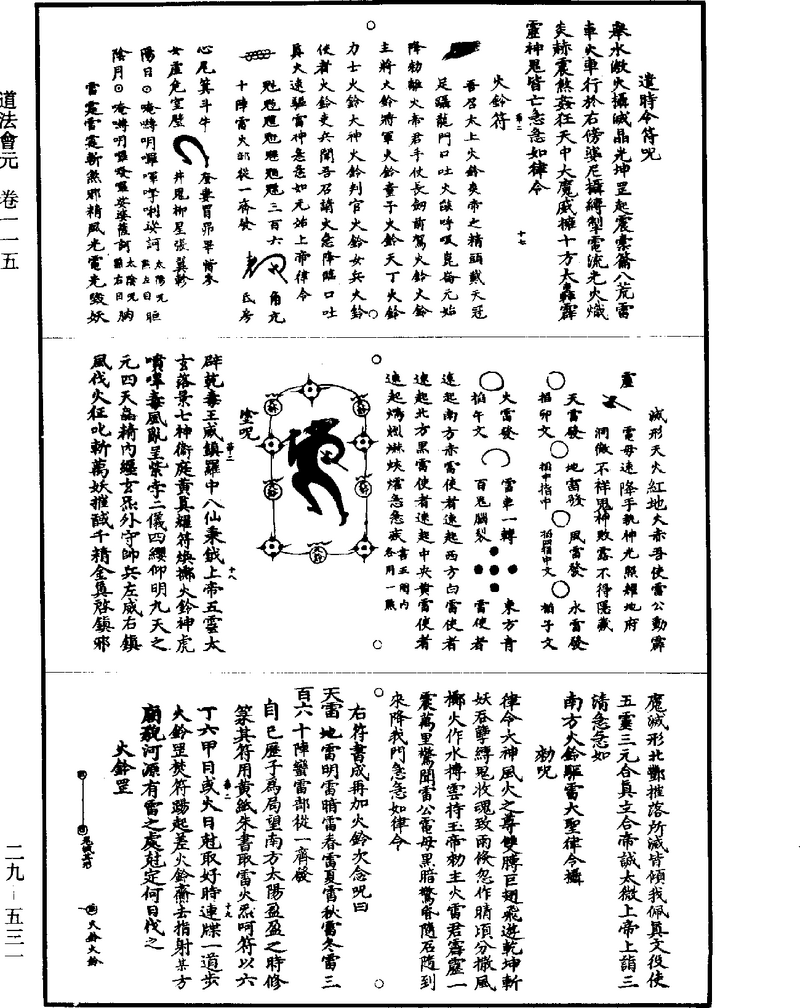 道法會元 卷一一五
二九-五三一
遣時令符咒
舉水激火攝滅晶光坤罡起震雲篆八荒雷
車火車行於右傍婆尼攝縛掣電流光火熾
炎赫震煞姦在天中大魔威擁十方大轟霹
靈神鬼皆亡急急如律令
火鈴符
第二
十七
吾召太上火鈴炎帝之精頭戴天冠
足躡龍門口吐火談呼吸崑崙元始
降勅離火帝君手仗長劒前駕火鈴火鈴
主將火鈴將軍火鈴童子火鈴天丁火鈴
力士火鈴大神火鈴判官火鈴女兵火鈴
使者火鈴吏兵聞吾召請火急降臨口吐
真火速驅雷神急急如元始上帝律令
三百六
角亢
十陣雷火部從一齊發
氐房
心尾箕斗牛
奎婁胃昴畢觜參
女虛危室壁
井鬼柳星張翼軫
陽日
太陽咒
點左目
陰月
太陰咒
點右目
胸
雷霆雷霆斬煞邪精風光電光毀妖
滅形天火紅地火赤吾使雷公動霹
靈
電母速降手執神光照耀地府
洞徹不祥鬼神敗露不得隱藏
天雷發
地雷發
風雷發
水雷發
掐卯文
掐中指中
掐四指中文
掐子文
火雷發
雷車一轉
東方青
掐午文
百鬼腦裂
雷使者
速起南方赤雷使者速起西方白雷使者
速起北方黑雷使者速起中央黃雷使者
塗咒
第二
十八
辟乾毒王威鎮羅中八仙乘鉞上帝五靈太
玄落景七神衞庭黃真耀符煥擲火鈴神虎
噴嗥毒風亂呈紫字二儀四纓仰明九天之
元四天晶精內纏玄炁外守帥兵左威右鎮
風伐火征叱斬萬妖摧馘千精金真啓鎮邪
魔滅形北酆摧落所滅皆傾我佩真文役使
五靈三元合真立合帝誠太微上帝上詣三
清急急如
南方火鈴驅雷大聖律令攝
勅咒
律令大神風火之尊雙膊巨翅飛遊乾坤斬
妖吞孽縛鬼收魂致雨倏忽作晴頃分撒風
擲火作水摶雲持王帝勅主火雷君霹靂一
震萬里驚聞雷公電母黑暗驚昏隨召隨到
來降我門急急如律令
右符書成再加火鈴次念咒曰
天雷地雷明雷暗雷春雷夏雷秋雷冬雷三
百六十陣蠻雷部從一齊發
第二
十九
自巳歷子爲局望南方太陽盈盈之時修
篆其符用黃紙朱書取雷火炁呵符以六
丁六甲日或火日尅取好時速牒一道步
火鈴罡焚符踢起差火鈴齎去指射某方
廟貌河源有雷之處尅定何日伐之
火鈴罡
火鈴火鈴